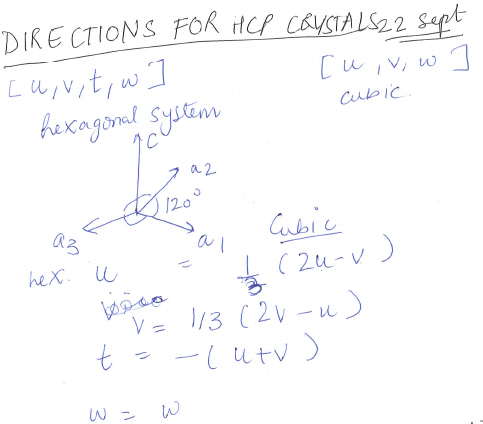 DIRECTIONS FOR HCP CRYSTALS 22 Sept
[u, v, t, w]
[u, v, w]
hexagonal system
cubic
c
a2
120°
a3
a1
Cubic
hex. u = 1/3 (2u-v)
v = 1/3 (2v-u)
t = -(u+v)
w = w